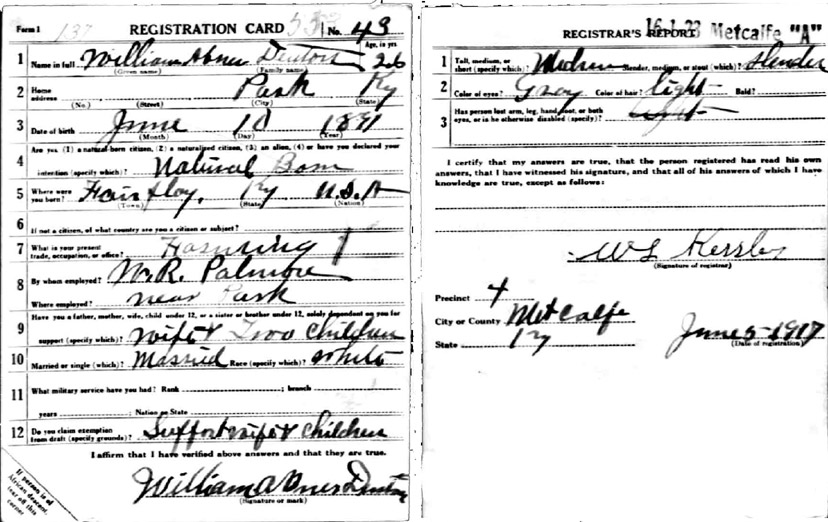 Form 1 137 REGISTRATION CARD No. 43
1 Name in full William Abner Denton Age, in yrs 26
(Given name) (Family name)
2 Home address Park Ky
(No.) (Street) (City) (State)
3 Date of birth June 10 1891
(Month) (Day) (Year)
4 Are you (1) a natural-born citizen, (2) a naturalized citizen, (3) an alien, (4) or have you declared your
intention (specify which)? Natural Born
5 Where were you born? Ky U.S.A
(Town) (State) (Nation)
6 If not a citizen, of what country are you a citizen or subject?
7 What is your present trade, occupation, or office? Farming
8 By whom employed? W.R. Palmore
Where employed? near Park
9 Have you a father, mother, wife, child under 12, or a sister or brother under 12, solely dependent on you for
support (specify which)? Wife & Two Children
10 Married or single (which)? Married Race (specify which)? White
11 What military service have you had? Rank ; branch
years ; Nation or State
12 Do you claim exemption from draft (specify grounds)? Support wife & Children
I affirm that I have verified above answers and that they are true.
William Abner Denton
(Signature or mark)
If person is of
African descent,
tear off this
corner
REGISTRAR'S REPORT 16-1-23 Metcalfe "A"
1 Tall, medium, or short (specify which)? Medium Slender, medium, or stout (which)? Slender
2 Color of eyes? Gray Color of hair? Light Bald?
3 Has person lost arm, leg, hand, foot, or both
eyes, or is he otherwise disabled (specify)?
I certify that my answers are true, that the person registered has read his own
answers, that I have witnessed his signature, and that all of his answers of which I have
knowledge are true, except as follows:
(Signature of registrar)
Precinct 4
City or County Metcalfe
State Ky June 5-1917
(Date of registration)